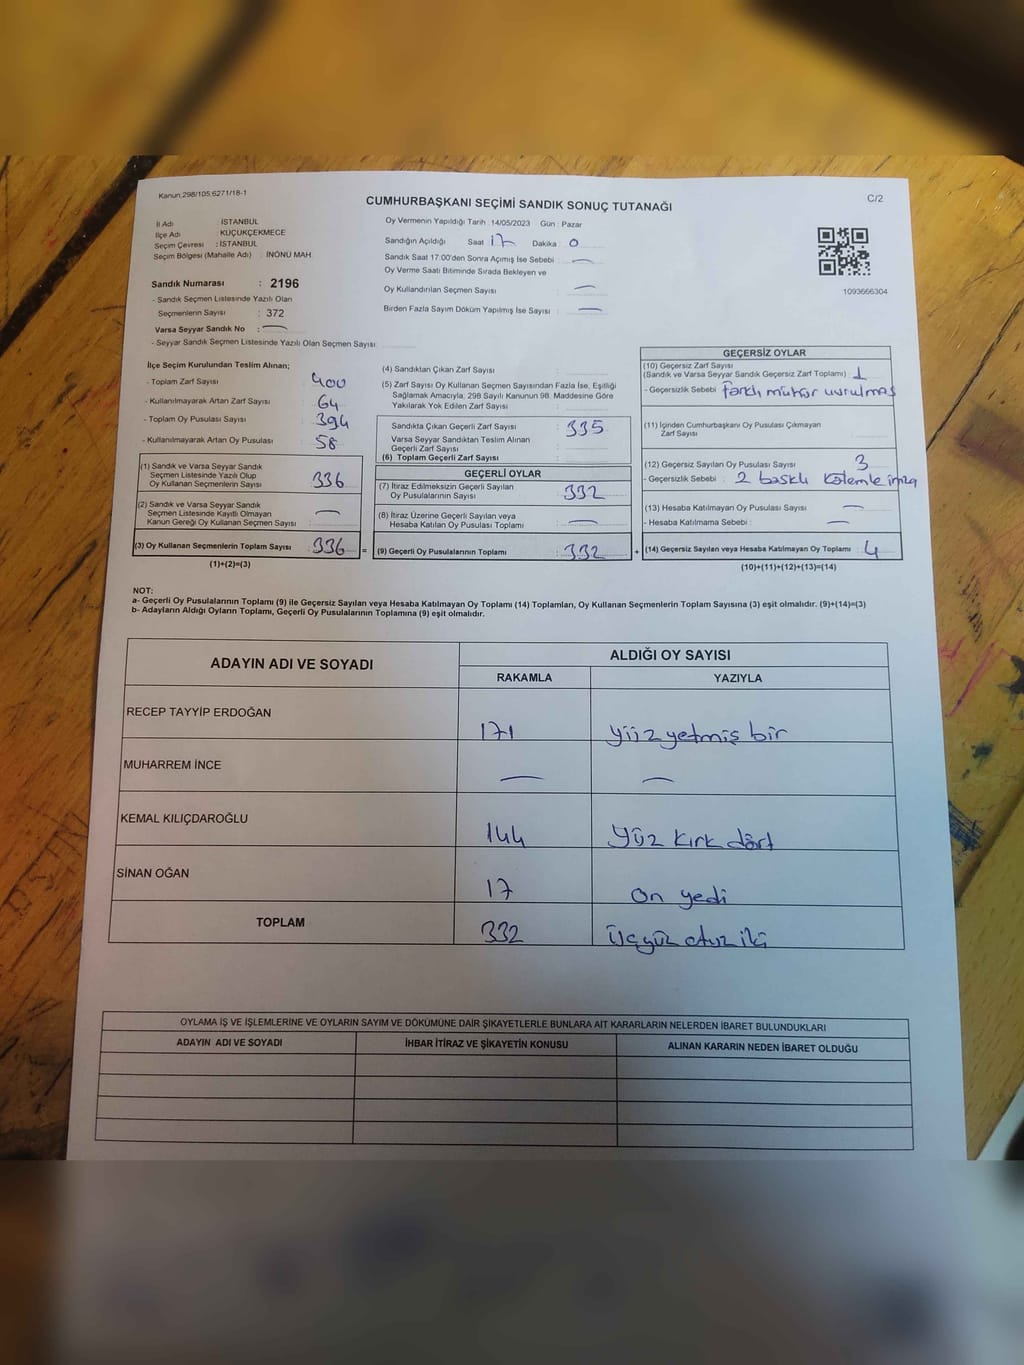 Kanun;298/105;6271/18-1
CUMHURBAŞKANI SEÇİMİ SANDIK SONUÇ TUTANAĞI
C/2
İl Adı : İSTANBUL
İlçe Adı : KÜÇÜKÇEKMECE
Seçim Çevresi : İSTANBUL
Seçim Bölgesi (Mahalle Adı) : İNÖNÜ MAH.
Sandık Numarası : 2196
- Sandık Seçmen Listesinde Yazılı Olan
Seçmenlerin Sayısı : 372
Varsa Seyyar Sandık No : —
- Seyyar Sandık Seçmen Listesinde Yazılı Olan Seçmen Sayısı:
Oy Vermenin Yapıldığı Tarih : 14/05/2023 Gün : Pazar
Sandığın Açıldığı Saat 17 Dakika : 0
Sandık Saat 17.00'den Sonra Açımış İse Sebebi : —
Oy Verme Saati Bitiminde Sırada Bekleyen ve
Oy Kullandırılan Seçmen Sayısı : —
Birden Fazla Sayım Döküm Yapılmış İse Sayısı : —
1093666304
İlçe Seçim Kurulundan Teslim Alınan;
- Toplam Zarf Sayısı : 400
- Kullanılmayarak Artan Zarf Sayısı : 64
- Toplam Oy Pusulası Sayısı : 394
- Kullanılmayarak Artan Oy Pusulası : 58
(1) Sandık ve Varsa Seyyar Sandık
Seçmen Listesinde Yazılı Olup
Oy Kullanan Seçmenlerin Sayısı : 336
(2) Sandık ve Varsa Seyyar Sandık
Seçmen Listesinde Kayıtlı Olmayan
Kanun Gereği Oy Kullanan Seçmen Sayısı : —
(3) Oy Kullanan Seçmenlerin Toplam Sayısı : 336 =
(1)+(2)=(3)
(4) Sandıktan Çıkan Zarf Sayısı :
(5) Zarf Sayısı Oy Kullanan Seçmen Sayısından Fazla İse, Eşitliği
Sağlamak Amacıyla, 298 Sayılı Kanunun 98. Maddesine Göre
Yakılarak Yok Edilen Zarf Sayısı :
Sandıkta Çıkan Geçerli Zarf Sayısı : 335
Varsa Seyyar Sandıktan Teslim Alınan
Geçerli Zarf Sayısı :
(6) Toplam Geçerli Zarf Sayısı :
GEÇERLİ OYLAR
(7) İtiraz Edilmeksizin Geçerli Sayılan
Oy Pusulalarının Sayısı : 332
(8) İtiraz Üzerine Geçerli Sayılan veya
Hesaba Katılan Oy Pusulası Toplamı : —
(9) Geçerli Oy Pusulalarının Toplamı : 332 +
GEÇERSİZ OYLAR
(10) Geçersiz Zarf Sayısı
(Sandık ve Varsa Seyyar Sandık Geçersiz Zarf Toplamı) : 1
- Geçersizlik Sebebi : farklı mühür vurulmaş
(11) İçinden Cumhurbaşkanı Oy Pusulası Çıkmayan
Zarf Sayısı :
(12) Geçersiz Sayılan Oy Pusulası Sayısı : 3
- Geçersizlik Sebebi : 2 baskılı kalemle imza
(13) Hesaba Katılmayan Oy Pusulası Sayısı : —
- Hesaba Katılmama Sebebi : —
(14) Geçersiz Sayılan veya Hesaba Katılmayan Oy Toplamı : 4
(10)+(11)+(12)+(13)=(14)
NOT:
a- Geçerli Oy Pusulalarının Toplamı (9) ile Geçersiz Sayılan veya Hesaba Katılmayan Oy Toplamı (14) Toplamları, Oy Kullanan Seçmenlerin Toplam Sayısına (3) eşit olmalıdır. (9)+(14)=(3)
b- Adayların Aldığı Oyların Toplamı, Geçerli Oy Pusulalarının Toplamına (9) eşit olmalıdır.
ADAYIN ADI VE SOYADI ALDIĞI OY SAYISI
RAKAMLA YAZIYLA
RECEP TAYYİP ERDOĞAN 171 yüz yetmiş bir
MUHARREM İNCE — —
KEMAL KILIÇDAROĞLU 144 yüz kırk dört
SİNAN OĞAN 17 on yedi
TOPLAM 332 üçyüz otuz iki
OYLAMA İŞ VE İŞLEMLERİNE VE OYLARIN SAYIM VE DÖKÜMÜNE DAİR ŞİKAYETLERLE BUNLARA AİT KARARLARIN NELERDEN İBARET BULUNDUKLARI
ADAYIN ADI VE SOYADI İHBAR İTİRAZ VE ŞİKAYETİN KONUSU ALINAN KARARIN NEDEN İBARET OLDUĞU